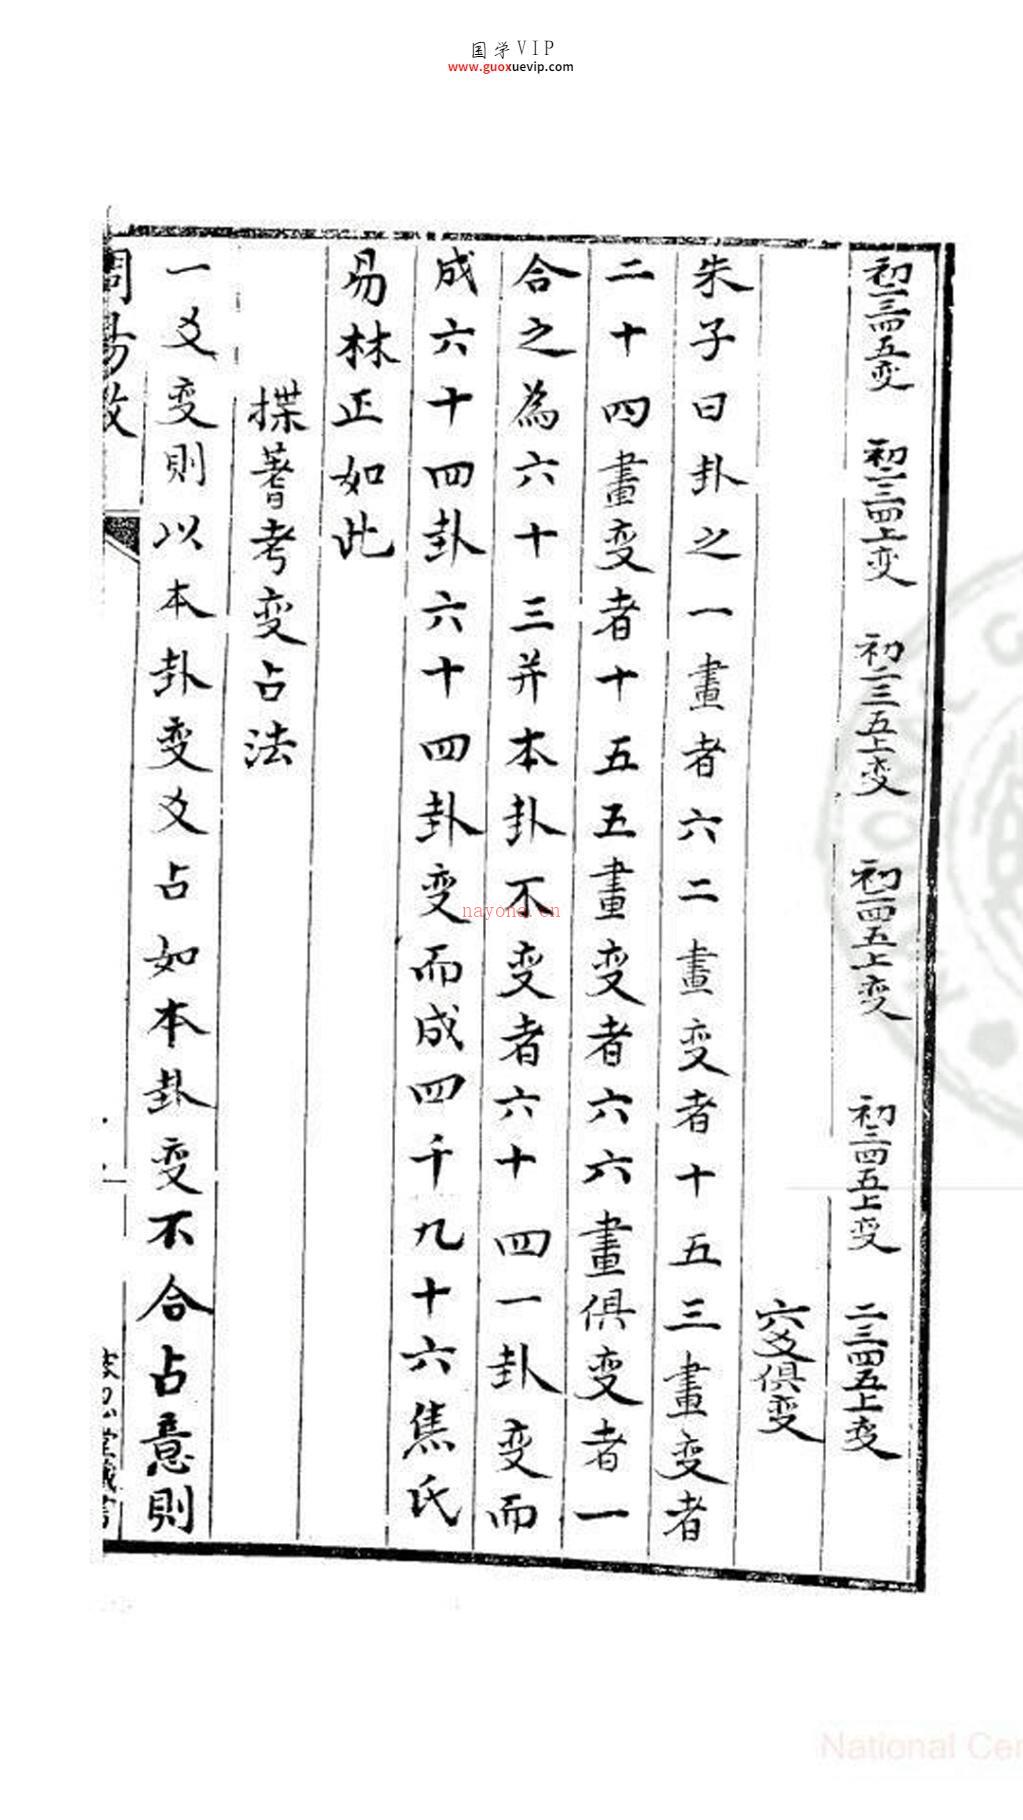 国学VIP
www.guoxuevip.com
初二三四五变　初二三四上变　初二三五上变　初二四五上变　初三四五上变　二三四五上变
六爻俱变
朱子曰卦之一畫者六二畫变者十五三畫变者
二十四畫变者十五五畫变者六六畫俱变者一
合之為六十三并本卦不变者六十四一卦变而
成六十四卦六十四卦变而成四千九十六焦氏
易林正如此
揲蓍考变占法
一爻变則以本卦变爻占如本卦变不合占意則
nayona.cn
National Cen